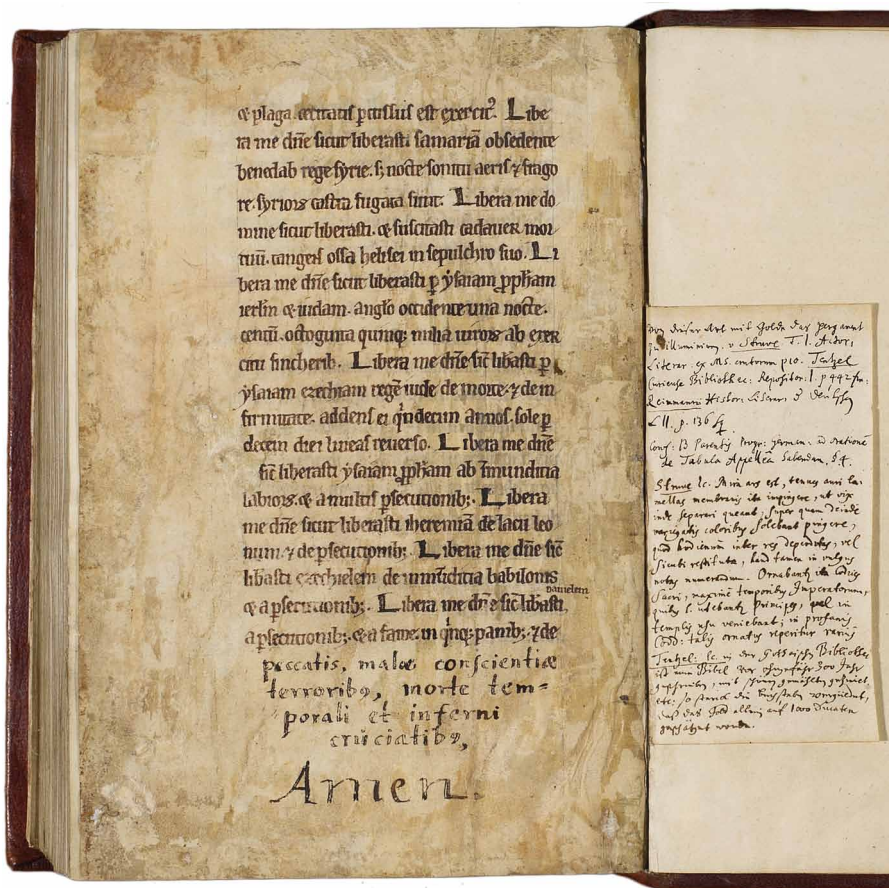 & plaga. cecitatis ꝑcussus est exercitꝰ. Libe
ra me dn̄e sicut liberasti samariā obsedente
benedab rege syrie. s; nocte sonitu aeris ⁊ frago
re. syrioꝝ castra fugata sunt. Libera me do
mine sicut liberasti. & suscitasti cadauer mor
tuū. tangens ossa helisei in sepulchro suo. Li
bera me dn̄e sicut liberasti ꝑ ysaiam ꝓpħam
ierl̄m & iudam. anglo occidente una nocte.
centū. octoginta quinqꝫ milia uiros ab exer
citu sincherib. Libera me dn̄e sic̄ libasti ꝑ
ysaiam ezechiam regē iude de morte. ⁊ de in
firmitate. addens ei qͥndecim annos. sole ꝑ
decem lineas reuerso. Libera me dn̄e
sic̄ liberasti ysaiam ꝓpħam ab īmunditia
labioꝝ. & a multis ꝑsecutionib;. Libera
me dn̄e sicut liberasti iheremiā de lacu leo
num. ⁊ de ꝑsecutionib;. Libera me dn̄e sic̄
libasti ezechielem de inmūditia babilonis
danielem
& a ꝑsecutionib;. Libera me dn̄e sic̄ libasti,
a ꝑsecutionib;. & a fame. in qͥnqꝫ panib; ⁊ de
peccatis, malæ conscientiæ
terroribꝰ, morte tem=
porali et inferni
cruciatibꝰ,
Amen.
von dieser Art mit Golde das pergament
zu illuminiren. v Struve T. 1. Actor.
Literar. ex MS. erutorum p 10. Tentzel
Curieuse Bibliothec: Repositor. 1. p 442
Reimmanni Histor: Literar. d
L II. p. 136 sq
Conf: Parentis Progr: German. ad orationē
de Tabula Appellēa habendam. § 4.
Struve lc. Mira ars est, tenues auri la-
mellas membranis ita impingere, ut vix
inde separari queant, super quam deinde
variegatis coloribus solebant pingere,
quod hodienum inter res deperditas, vel
sicubi restituta, haud tamen in vulgus
notas numerandum. Ornabantʳ ita Codices
Sacri, maxime temporibꝰ Imperatorum,
quibꝰ l. utebantʳ Principes, vel in
templis usu veniebant; in profanis
Codd: talis ornatus reperitur rarius
Tentzel: lc. in der Gothaischen Bibliothec
ist eine Bibel vor ohngefähr 300 Jahr
geschrieben, mit schönen gemählten gezieret,
etc. so starck die Buchstaben vergüldet,
daß das Gold allein auf 1000 Ducaten
geschätzet worden.